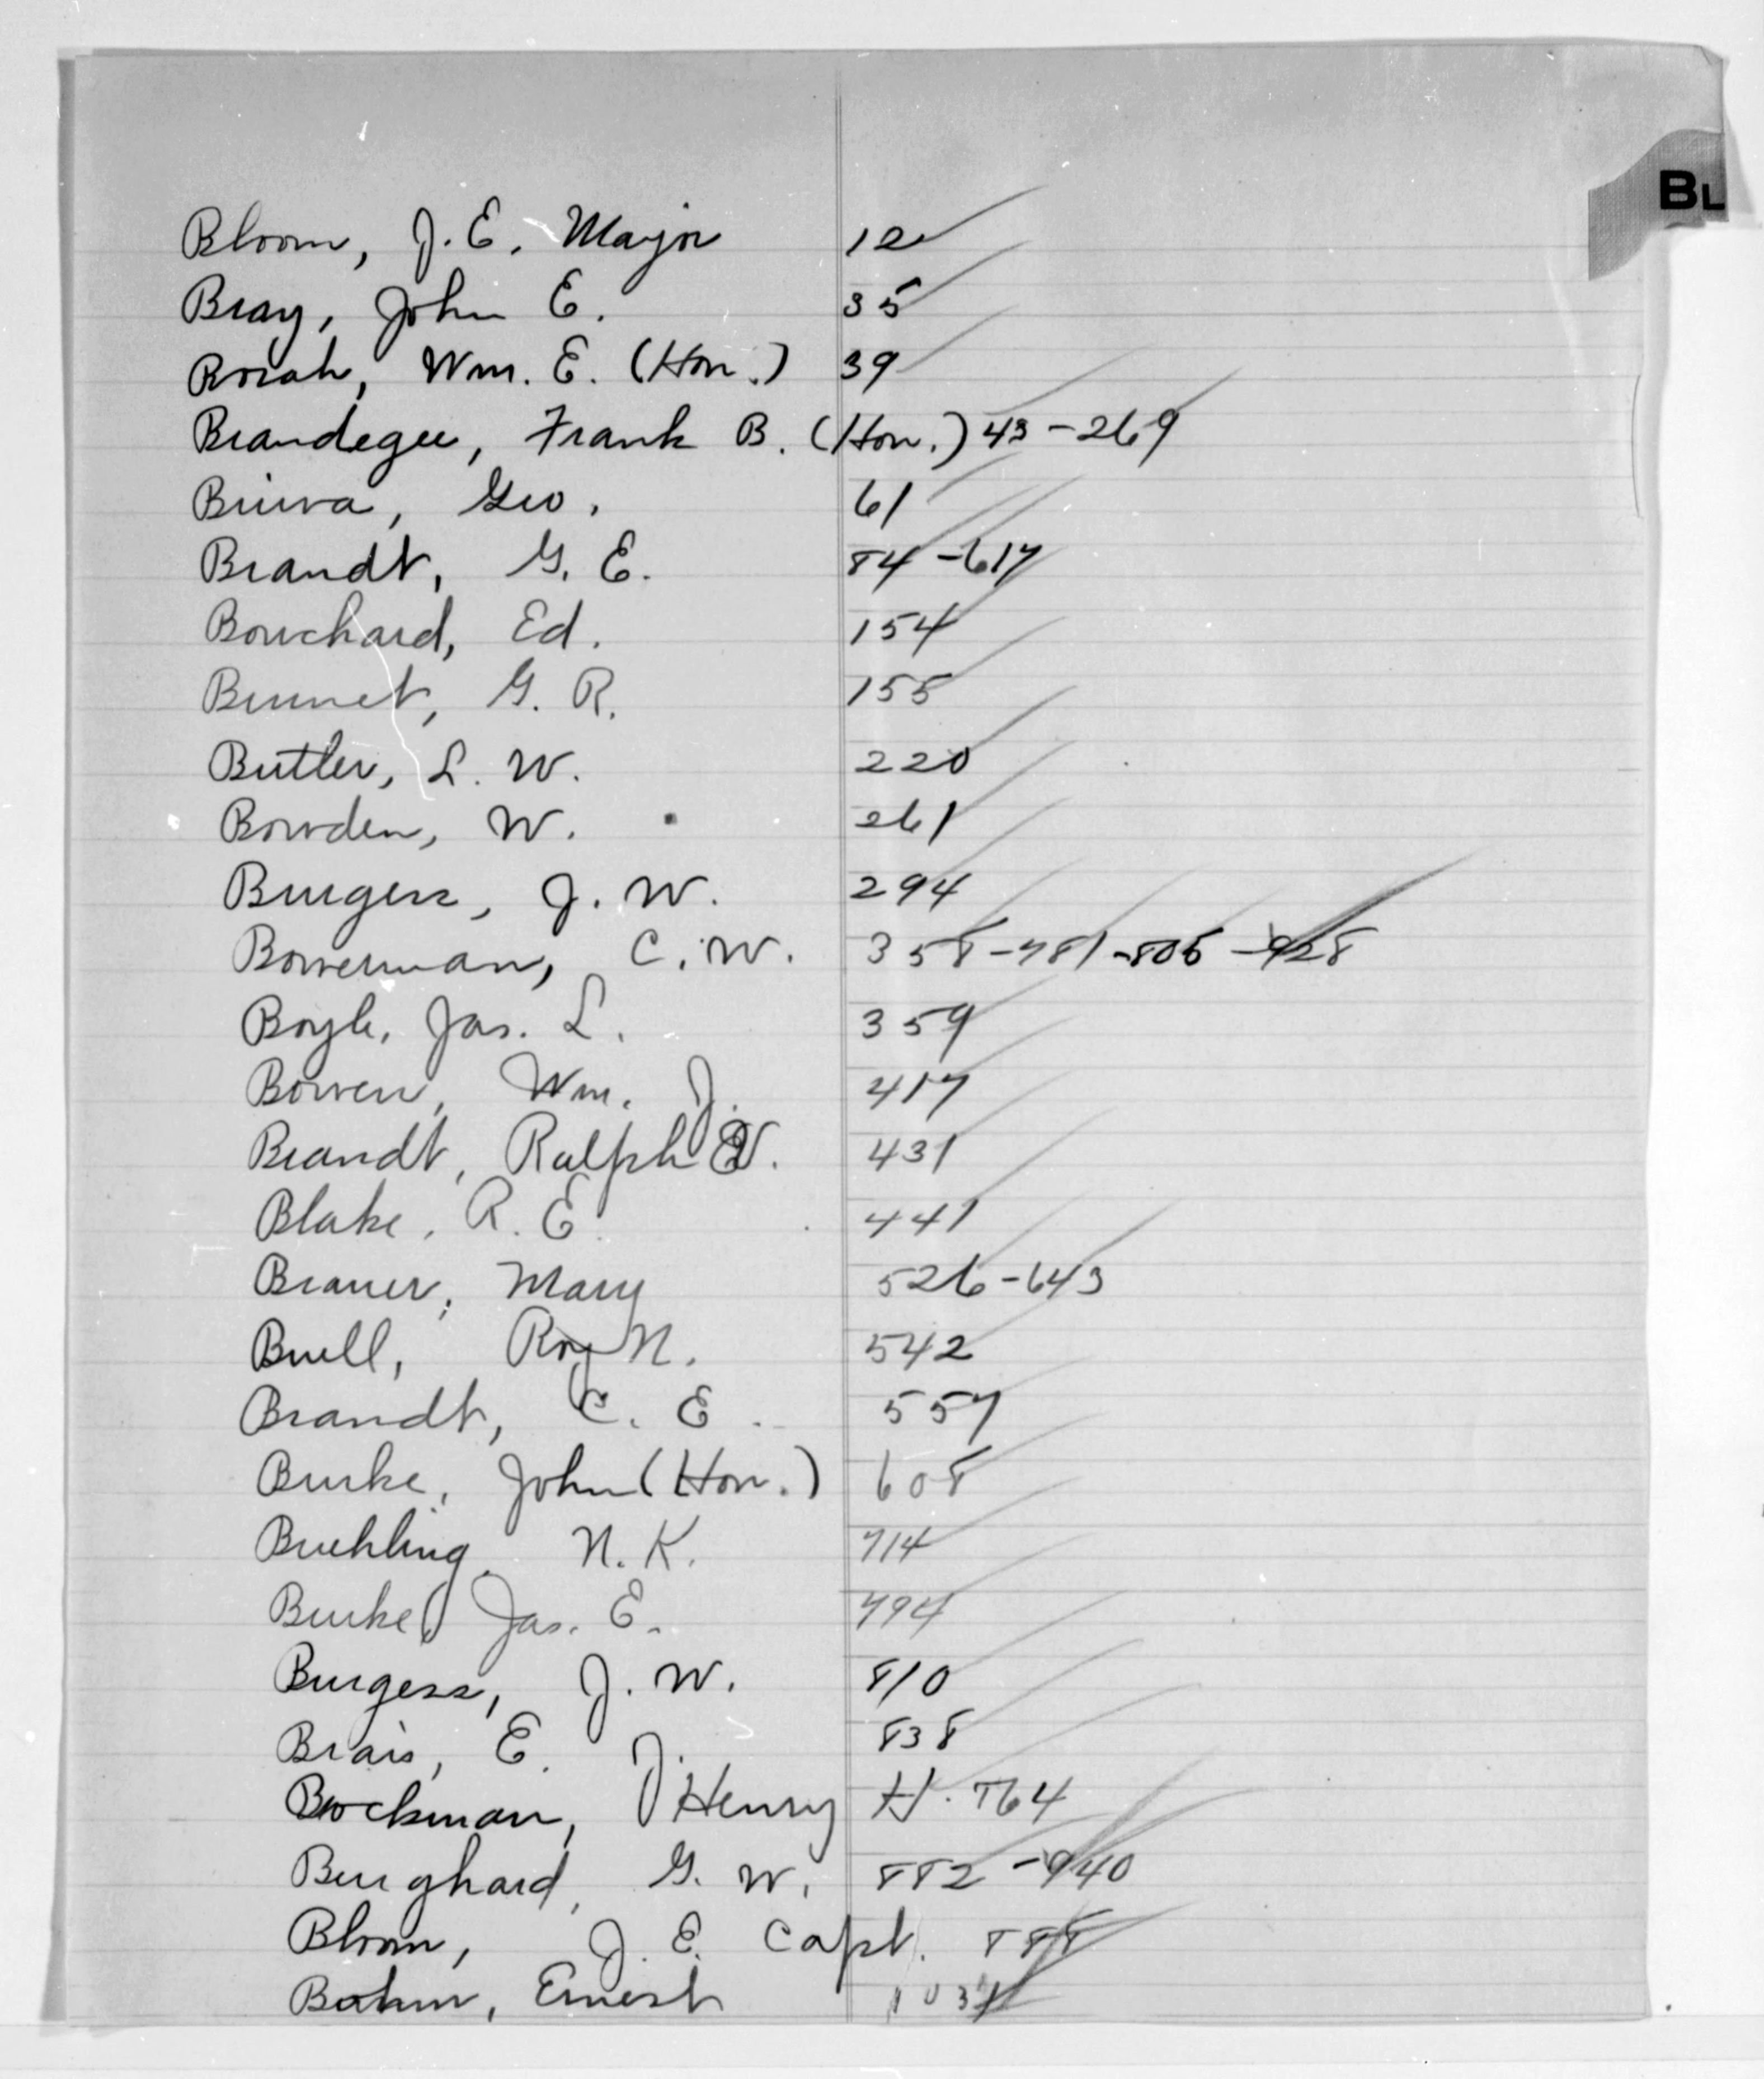 BL
Bloom, J. E. Major 12
Bray, John E. 35
Borah, Wm. E. (Hon.) 39
Brandegee, Frank B. (Hon.) 43-269
Geo. 61
Brandt, G. E. 84-617
Bouchard, Ed. 154
Brunet, G. R. 155
Butler, L. W. 220
Bowden, W. 261
Burgess, J. W. 294
Bowerman, C. W. 358-781-805-928
Boyle, Jas. L. 359
Bowen, Wm. J. 417
Brandt, Ralph V. 431
Blake, R. E. 441
Brauer, Mary 526-643
Buell, Roy N. 542
Brandt, C. E. 557
Burke, John (Hon.) 608
Buehling, N. K. 714
Burke, Jas. E. 794
Burgess, J. W. 810
Brais, E. J. 838
Brockman, Henry H. 764
Burghard, G. W. 882-940
Bloom, J. E. Capt. 888
Bohm, Ernest